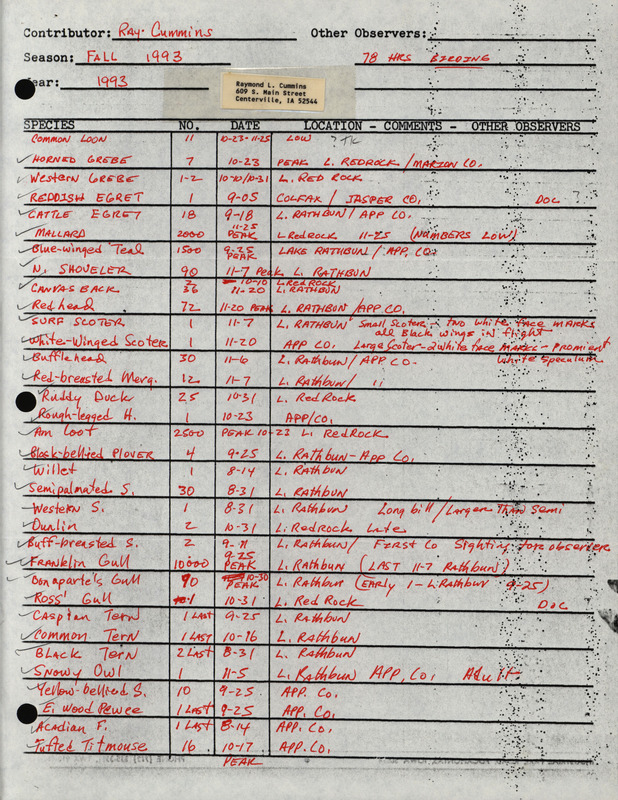 Contributor: Ray Cummins Other Observers:
Season: FALL 1993 78 HRS BIRDING
Year: 1993
Raymond L. Cummins
609 S. Main Street
Centerville, IA 52544
SPECIES NO. DATE LOCATION - COMMENTS - OTHER OBSERVERS
COMMON LOON 11 10-23-11-25 LOW ?TK
HORNED GREBE 7 10-23 PEAK L. REDROCK/MARION CO.
WESTERN GREBE 1-2 10-10/10-31 L. RED ROCK
REDDISH EGRET 1 9-05 COLFAX / JASPER CO. DOC ?
CATTLE EGRET 18 9-18 L. RATHBUN / APP CO.
MALLARD 2000 11-25 PEAK L RedRock 11-25 (NUMBERS LOW)
Blue-winged Teal 1500 9-25 PEAK LAKE RATHBUN / APP. CO.
N. SHOVELER 90 11-7 Peak L. RATHBUN
CANVASBACK 2 10-10 L. RedRock
36 11-20 L. RATHBUN
Redhead 72 11-20 PEAK L. RATHBUN /APP.CO.
SURF SCOTER 1 11-7 L. RATHBUN Small Scoter - two white face marks
all Black wings in flight
White-Winged Scoter 1 11-20 APP CO. Large Scoter - 2 white face marks - promient
white speculum
Bufflehead 30 11-6 L. Rathbun/APP CO.
Red-breasted Merg. 12 11-7 L. Rathbun/ "
Ruddy Duck 25 10-31 L. RedRock
Rough-legged H. 1 10-23 APP/CO.
Am Coot 2500 PEAK 10-23 L. RedRock
Black-bellied PLOVER 4 9-25 L. Rathbun - App Co.
Willet 1 8-14 L. Rathbun
Semipalmated S. 30 8-31 L. Rathbun
Western S. 1 8-31 L. Rathbun Long bill / Larger Than Semi
Dunlin 2 10-31 L. RedRock Late
Buff-breasted S. 2 9-11 L. Rathbun/ First Co Sighting for observer
Franklin Gull 10000 9-25 PEAK L. Rathbun (LAST 11-7 Rathbun)
Bonaparte's Gull 90 10-30 PEAK L. Rathbun (Early 1-L. Rathbun 9-25)
Ross' Gull 1 10-31 L. Red Rock DOC
CASPIAN TERN 1 LAST 9-25 L. Rathbun
Common Tern 1 LAST 10-16 L. Rathbun
BLACK TERN 2 Last 8-31 L. Rathbun
Snowy Owl 1 11-5 L. Rathbun APP. Co. Adult
Yellow-bellied S. 10 9-25 APP. Co.
E. Wood Pewee 1 Last 9-25 APP. Co.
Acadian F. 1 Last 8-14 APP. Co.
Tufted Titmouse 16 10-17 APP. Co.
PEAK